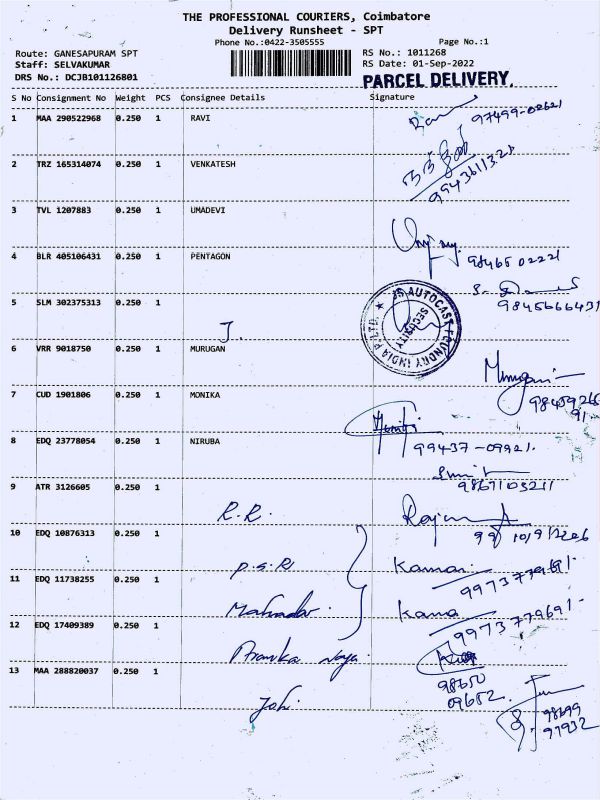 THE PROFESSIONAL COURIERS, Coimbatore
Delivery Runsheet - SPT
Phone No.:0422-3505555 Page No.:1
Route: GANESAPURAM SPT RS No.: 1011268
Staff: SELVAKUMAR RS Date: 01-Sep-2022
DRS No.: DCJB101126801 PARCEL DELIVERY.
S No Consignment No Weight PCS Consignee Details Signature
1 MAA 290522968 0.250 1 RAVI
97499-02621
2 TRZ 165314074 0.250 1 VENKATESH
9943611321
3 TVL 1207883 0.250 1 UMADEVI
4 BLR 405106431 0.250 1 PENTAGON
98465 02221
5 SLM 302375313 0.250 1
9845666431
JS AUTOCAST FOUNDRY INDIA P. LTD.
SECURITY
J.
6 VRR 9018750 0.250 1 MURUGAN
Murugan
7 CUD 1901806 0.250 1 MONIKA
8 EDQ 23778054 0.250 1 NIRUBA
99437-09921.
9 ATR 3126605 0.250 1
R.R.
10 EDQ 10876313 0.250 1
P.S.R
9973779691-
11 EDQ 11738255 0.250 1
Mahadev. Kama
9973779691-
12 EDQ 17409389 0.250 1
98650
09652.
13 MAA 288820037 0.250 1
98699
97932